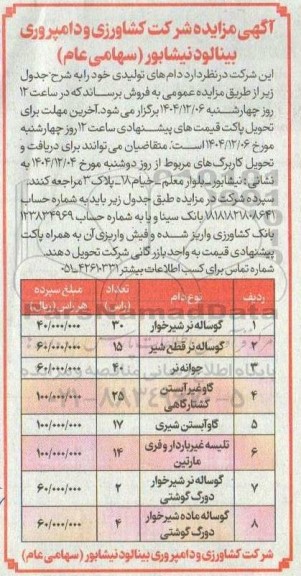 آگهی مزایده شرکت کشاورزی و دامپروری
بینالود نیشابور (سهامی عام)
این شرکت در نظر دارد دام های تولیدی خود را به شرح جدول
زیر از طریق مزایده عمومی به فروش برساند که در ساعت ۱۲
روز چهارشنبه ۱۴۰۴/۱۲/۰۶ برگزار می شود. آخرین مهلت برای
تحویل پاکت قیمت های پیشنهادی ساعت ۱۲ روز چهارشنبه
مورخ ۱۴۰۴/۱۲/۰۶ است. متقاضیان می توانند برای دریافت و
تحویل کاربرگ های مربوط از روز دوشنبه مورخ ۱۴۰۴/۱۲/۰۴ به
نشانی: نیشابور - بلوار معلم - خیام ۱۸ - پلاک ۳ مراجعه کنند.
سپرده شرکت در مزایده طبق جدول زیر باید به شماره حساب
بانک سینا و یا به شماره حساب ۱۲۳۸۳۴۹۶۹
بانک کشاورزی واریز شده و فیش واریزی آن به همراه پاکت
پیشنهادی قیمت به واحد بازرگانی شرکت تحویل دهند.
شماره تماس برای کسب اطلاعات بیشتر: ۴۲۶۱۰۳۳۱-۰۵۱
ردیف نوع دام تعداد (راس) مبلغ سپرده هر راس (ریال)
۱ گوساله نر شیرخوار ۳۰ ۴۰/۰۰۰/۰۰۰
۲ گوساله نر قطع شیر ۱۵ ۶۰/۰۰۰/۰۰۰
۳ جوانه نر ۴۰ ۶۰/۰۰۰/۰۰۰
۴ گاو غیر آبستن کشتارگاهی ۲۵ ۱۰۰/۰۰۰/۰۰۰
۵ گاو آبستن شیری ۱۷ ۱۰۰/۰۰۰/۰۰۰
۶ تلیسه غیر باردار و فری مارتین ۱۴ ۱۰۰/۰۰۰/۰۰۰
۷ گوساله نر شیرخوار دورگ گوشتی ۲ ۶۰/۰۰۰/۰۰۰
۸ گوساله ماده شیرخوار دورگ گوشتی ۴ ۶۰/۰۰۰/۰۰۰
شرکت کشاورزی و دامپروری بینالود نیشابور (سهامی عام)